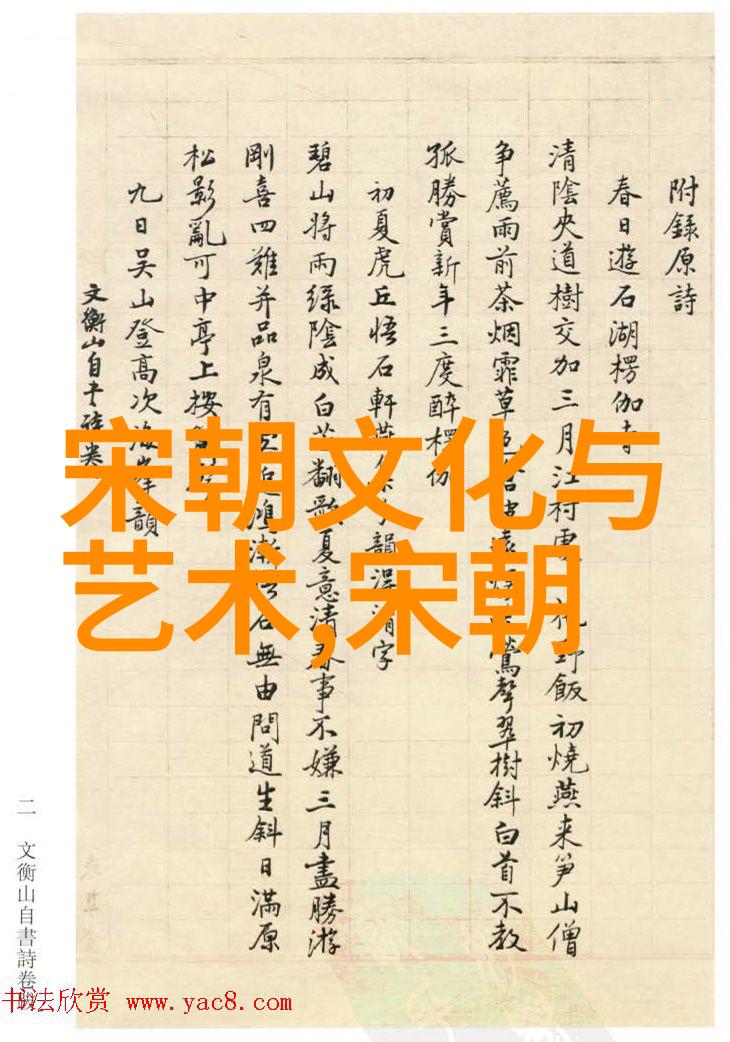 附錄原詩
春日遊石湖楞伽
清陰夾道樹交加三月江村 野飯初燒燕来笋山僧
争薦雨前茶烟霏草 鶯聲翠樹斜白首不教
孤勝賞新年三度醉楞
初夏虎丘悟石軒 韻得清字
碧山将雨綠陰成白苎翻歌夏意清春事不嫌三月盡勝游
剛喜四難并品泉有 石無由問道生斜日滿原
松影亂可中亭上按
九日吴山登高次 韻
文衡山自
二 文衡山自書詩卷
宋朝文化与
艺术,宋朝
书法欣赏 www.yac8.com